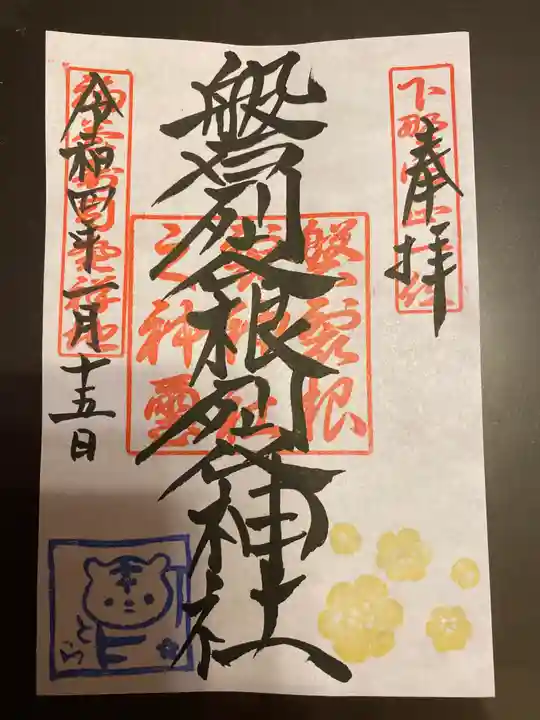 奉拝
磐裂根裂神社
磐裂根
裂神社
之神璽
令和四年一月十五日
とら